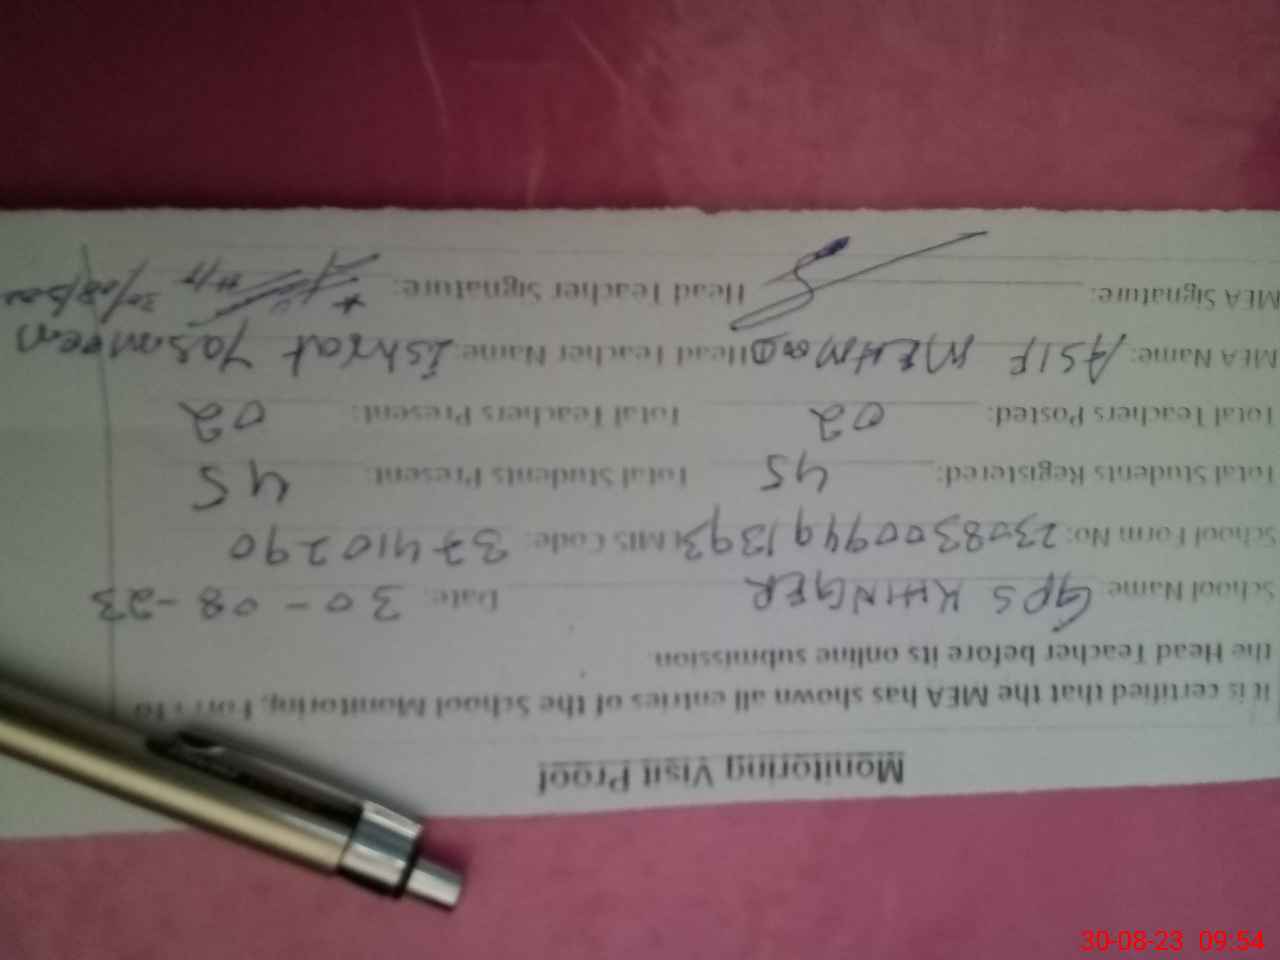 Monitoring Visit Proof
It is certified that the MEA has shown all entries of the School Monitoring, Form to
the Head Teacher before its online submission.
School Name: GPS KHINGER Date: 30-08-23
School Form No: 23083009491393 EMIS Code: 37410290
Total Students Registered: 45 Total Students Present: 45
Total Teachers Posted: 02 Total Teachers Present: 02
MEA Name: ASIF MEHMOOD Head Teacher Name: Ishrat Yasmeen
MEA Signature: Head Teacher Signature:
30-08-23 09:54